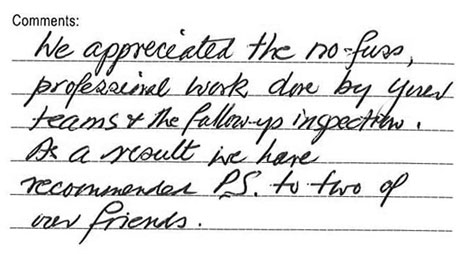 Comments:
We appreciated the no-fuss,
professional work done by your
teams & the follow-up inspection.
As a result we have
recommended P.S. to two of
our friends.